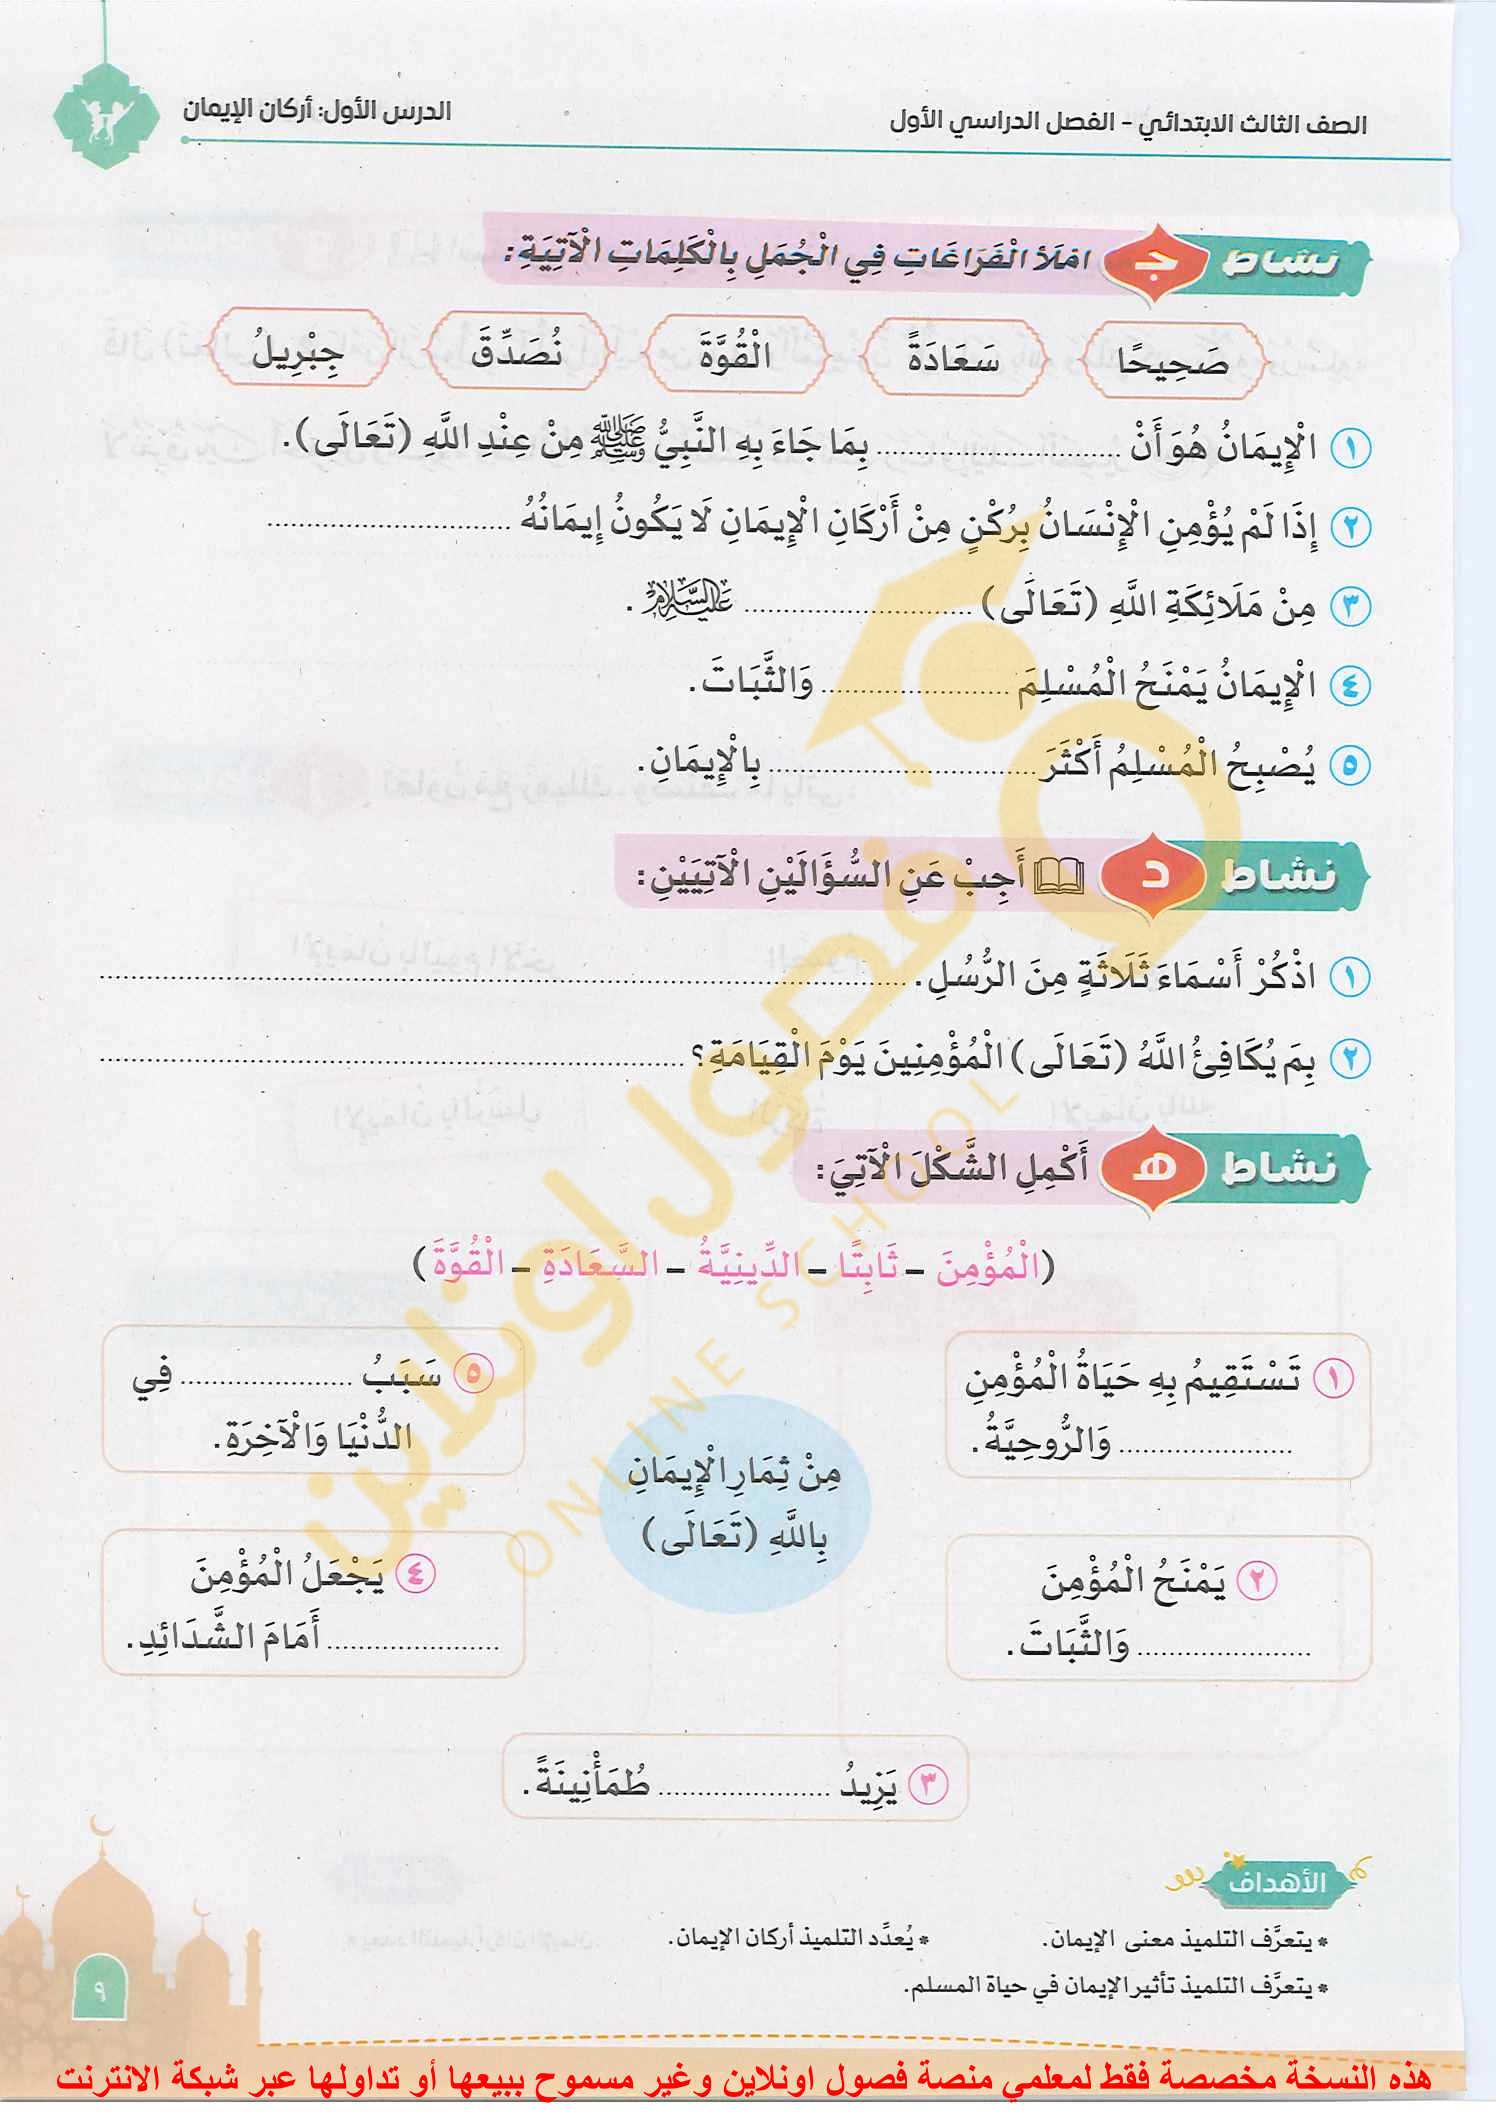 الصف الثالث الابتدائي - الفصل الدراسي الأول
الدرس الأول: أركان الإيمان
نشاط ج امْلَأِ الْفَرَاغَاتِ فِي الْجُمَلِ بِالْكَلِمَاتِ الْآتِيَةِ:
صَحِيحًا سَعَادَةً الْقُوَّةَ نُصَدِّقَ جِبْرِيلُ
١ الْإِيمَانُ هُوَ أَنْ .............................. بِمَا جَاءَ بِهِ النَّبِيُّ ﷺ مِنْ عِنْدِ اللَّهِ (تَعَالَى).
٢ إِذَا لَمْ يُؤْمِنِ الْإِنْسَانُ بِرُكْنٍ مِنْ أَرْكَانِ الْإِيمَانِ لَا يَكُونُ إِيمَانُهُ ..............................
٣ مِنْ مَلَائِكَةِ اللَّهِ (تَعَالَى) .............................. عَلَيْهِ السَّلَامُ .
٤ الْإِيمَانُ يَمْنَحُ الْمُسْلِمَ .............................. وَالثَّبَاتَ.
٥ يُصْبِحُ الْمُسْلِمُ أَكْثَرَ .............................. بِالْإِيمَانِ.
نشاط د أَجِبْ عَنِ السُّؤَالَيْنِ الْآتِيَيْنِ:
١ اذْكُرْ أَسْمَاءَ ثَلَاثَةٍ مِنَ الرُّسُلِ. ..............................
٢ بِمَ يُكَافِئُ اللَّهُ (تَعَالَى) الْمُؤْمِنِينَ يَوْمَ الْقِيَامَةِ؟ ..............................
نشاط هـ أَكْمِلِ الشَّكْلَ الْآتِيَ:
(الْمُؤْمِنَ - ثَابِتًا - الدِّينِيَّةُ - السَّعَادَةِ - الْقُوَّةَ)
١ تَسْتَقِيمُ بِهِ حَيَاةُ الْمُؤْمِنِ
.................... وَالرُّوحِيَّةُ.
٥ سَبَبُ .................... فِي
الدُّنْيَا وَالْآخِرَةِ.
مِنْ ثِمَارِ الْإِيمَانِ
بِاللَّهِ (تَعَالَى)
٢ يَمْنَحُ الْمُؤْمِنَ
.................... وَالثَّبَاتَ.
٤ يَجْعَلُ الْمُؤْمِنَ
.................... أَمَامَ الشَّدَائِدِ.
٣ يَزِيدُ .................... طُمَأْنِينَةً.
الأهداف
* يتعرَّف التلميذ معنى الإيمان.
* يُعدِّد التلميذ أركان الإيمان.
* يتعرَّف التلميذ تأثير الإيمان في حياة المسلم.
٩
فصول اونلاين
ONLINE SCHOOL
هذه النسخة مخصصة فقط لمعلمي منصة فصول اونلاين وغير مسموح ببيعها أو تداولها عبر شبكة الانترنت